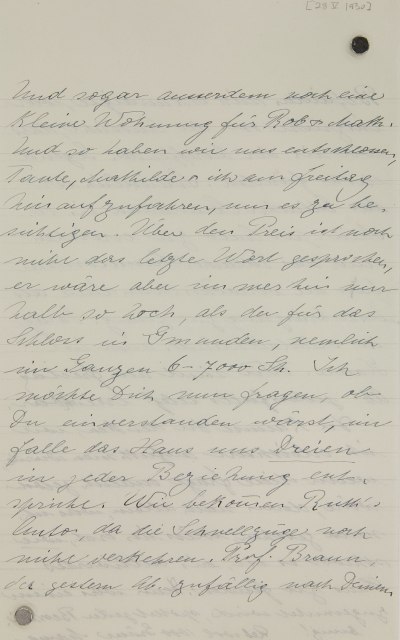 [23 V 1930]
Und sogar ausserdem noch eine
kleine Wohnung für Rob & Math.
Und so haben wir uns entschlossen,
Tante, Mathilde & ich am Freitag
hinaufzufahren, um es zu be-
sichtigen. Über den Preis ist noch
nicht das letzte Wort gesprochen,
er wäre aber immerhin nur
halb so hoch, als der für das
Schloss in Gmunden, nemlich
im Ganzen 6-7000 Sh. Ich
möchte Dich nun fragen, ob
Du einverstanden wärst, im
falle das Haus uns Dreien
in jeder Beziehung ent-
spricht. Wir bekom̄en Ruth's
Auto, da die Schnellzüge noch
nicht verkehren. Prof. Braun,
der gestern Ab. zufällig nach Deinem